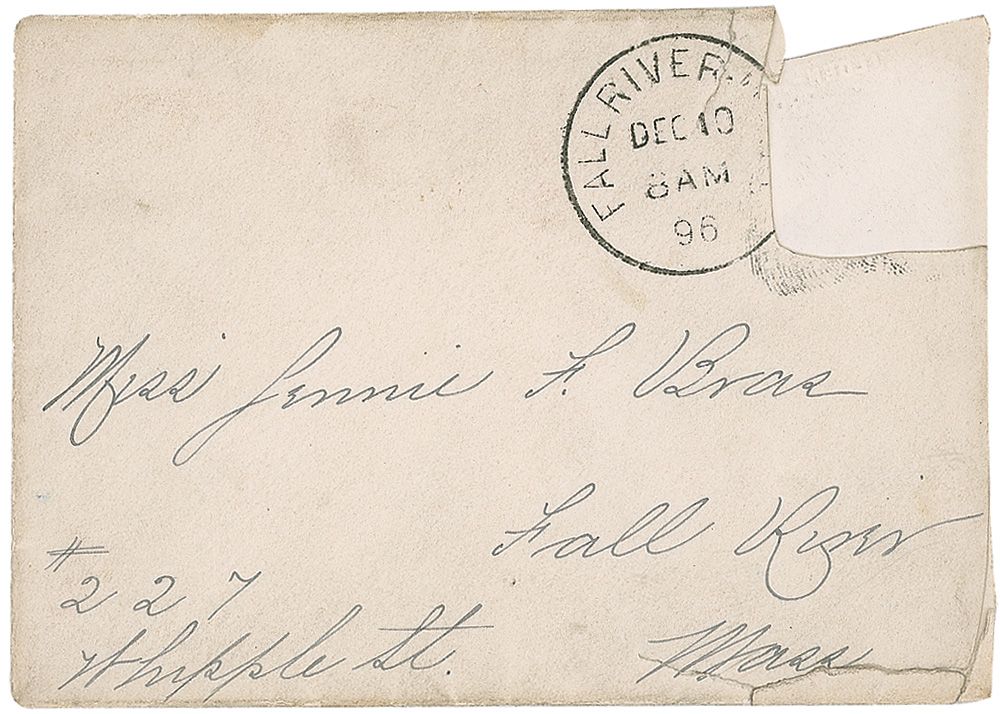 FALL RIVER
DEC 10
8 AM
96
Miss Jennie F. Bras
Fall River
Mass
#
227
Whipple St.